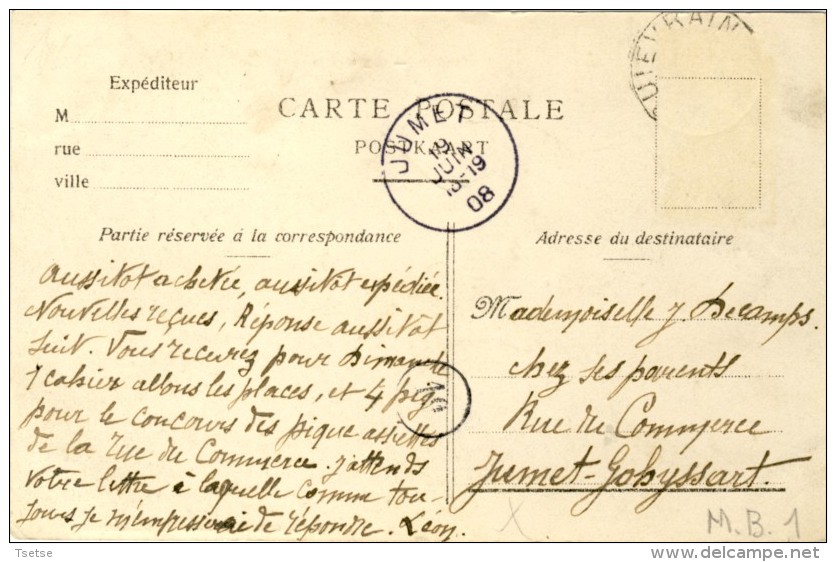 QUIEVRAIN
Expéditeur
M
rue
ville
CARTE POSTALE
POSTKAART
JUMET
19
JUIN
18-19
08
Partie réservée á la correspondance
Adresse du destinataire
aussitot achetée, aussitot expédiée.
Nouvelles reçues, Réponse aussitôt
suit. Vous recevrez pour Dimanche
1 cahier allons les places, et 4 pig
pour le concours des pique assiettes
de la rue du Commerce. J'attends
votre lettre à laquelle comme tou-
jours je m'empresserai de répondre. Léon.
Mademoiselle J. Decamps.
chez ses parents
Rue du Commerce
Jumet-Gohyssart.
M.B.1
Tsetse
delcampe.net